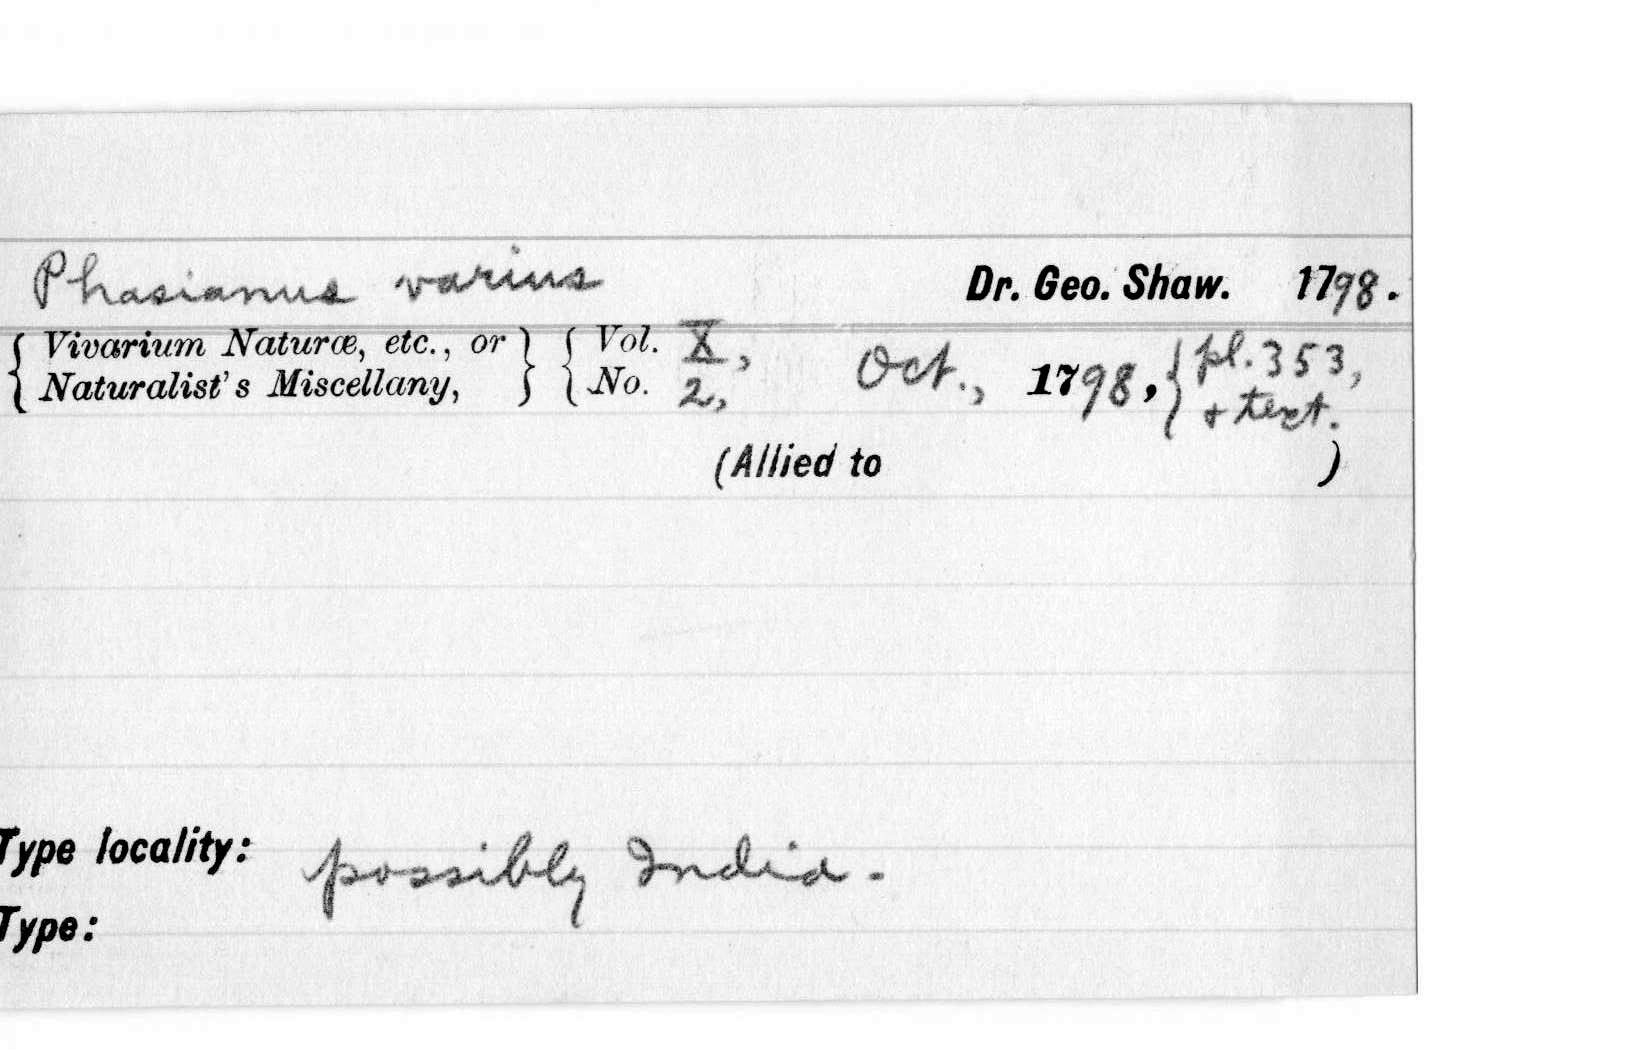 Phasianus varius Dr. Geo. Shaw. 1798.
{ Vivarium Naturæ, etc., or } { Vol. X, Oct., 1798, { pl. 353,
{ Naturalist's Miscellany, } { No. 2, + text.
(Allied to )
Type locality: possibly India.
Type: